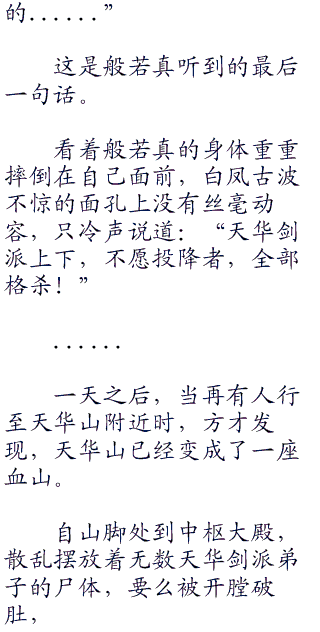 的......”
这是般若真听到的最后
一句话。
看着般若真的身体重重
摔倒在自己面前，白凤古波
不惊的面孔上没有丝毫动
容，只冷声说道：“天华剑
派上下，不愿投降者，全部
格杀！”
......
一天之后，当再有人行
至天华山附近时，方才发
现，天华山已经变成了一座
血山。
自山脚处到中枢大殿，
散乱摆放着无数天华剑派弟
子的尸体，要么被开膛破
肚，